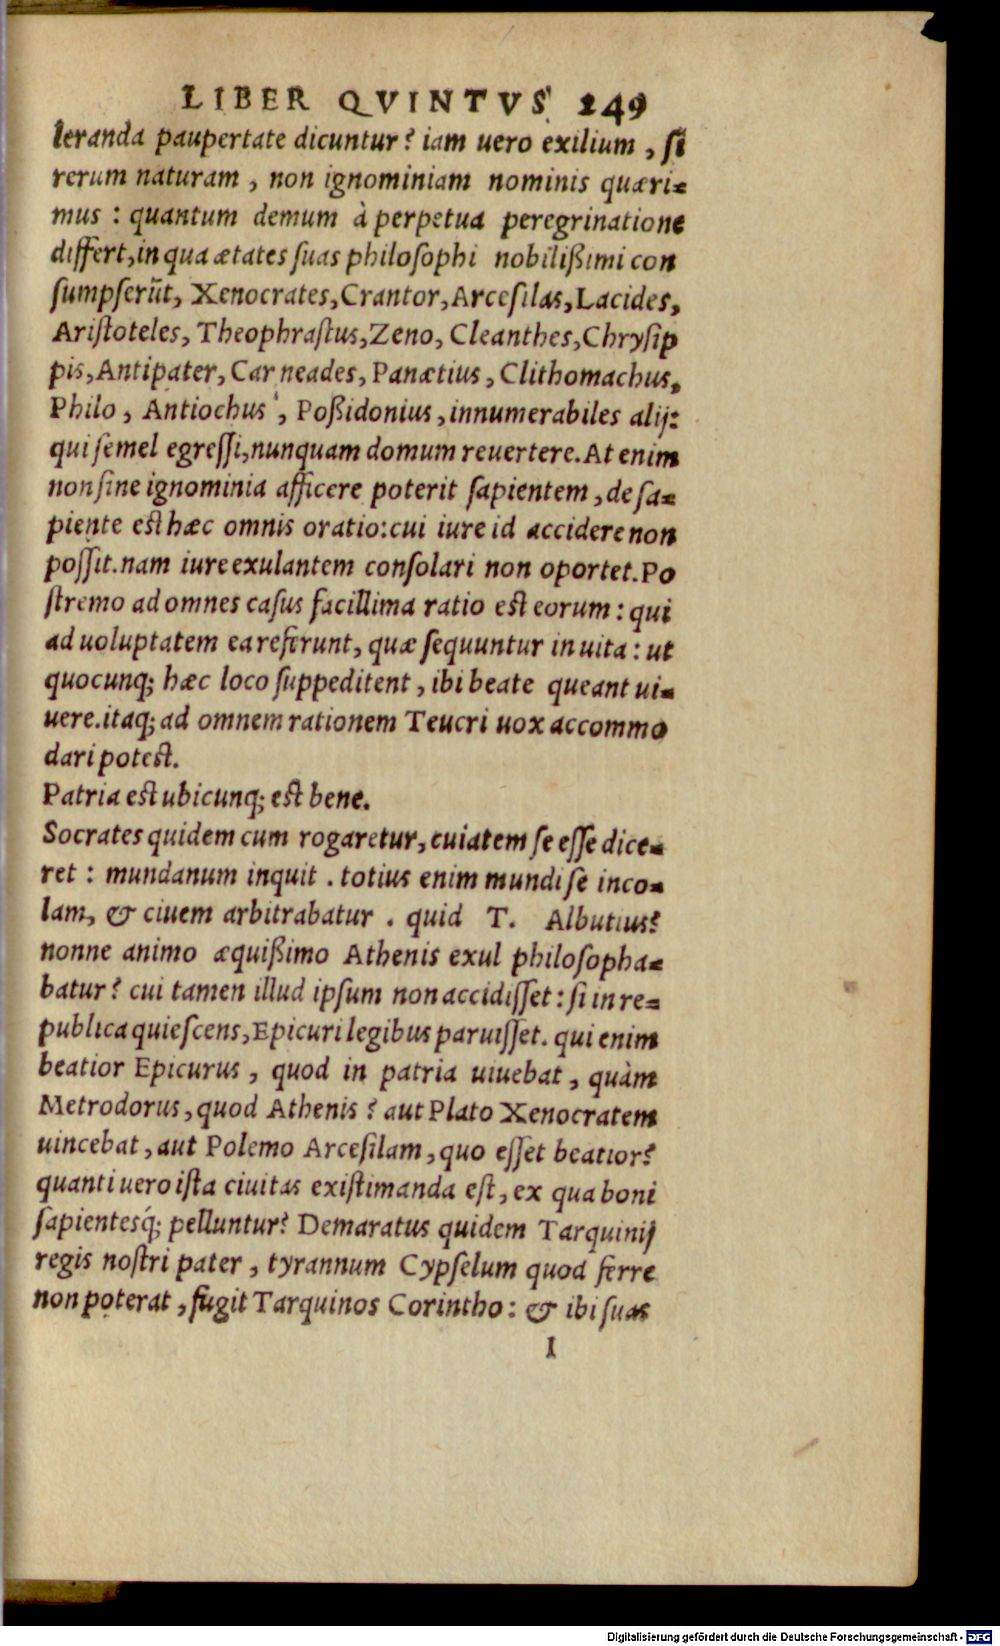 LIBER QVINTVS 249
leranda paupertate dicuntur? iam uero exilium, ſi
rerum naturam, non ignominiam nominis quæri=
mus: quantum demum à perpetua peregrinatione
differt, in qua ætates ſuas philoſophi nobilißimi con
ſumpſerūt, Xenocrates, Crantor, Arceſilas, Lacides,
Ariſtoteles, Theophraſtus, Zeno, Cleanthes, Chryſip
pis, Antipater, Carneades, Panætius, Clithomachus,
Philo, Antiochus, Poßidonius, innumerabiles alij:
qui ſemel egreſſi, nunquam domum reuertere. At enim
non ſine ignominia afficere poterit ſapientem, de ſa=
piente eſt hæc omnis oratio: cui iure id accidere non
poſſit. nam iure exulantem conſolari non oportet. Po
ſtremo ad omnes caſus facillima ratio eſt eorum: qui
ad uoluptatem ea referunt, quæ ſequuntur in uita: ut
quocunq; hæc loco ſuppeditent, ibi beate queant ui=
uere. itaq; ad omnem rationem Teucri uox accommo
dari poteſt.
Patria eſt ubicunq; eſt bene.
Socrates quidem cum rogaretur, cuiatem ſe eſſe dice=
ret: mundanum inquit. totius enim mundi ſe inco=
lam, & ciuem arbitrabatur. quid T. Albutius?
nonne animo æquißimo Athenis exul philoſopha=
batur? cui tamen illud ipſum non accidiſſet: ſi in re=
publica quieſcens, Epicuri legibus paruiſſet. qui enim
beatior Epicurus, quod in patria uiuebat, quàm
Metrodorus, quod Athenis? aut Plato Xenocratem
uincebat, aut Polemo Arceſilam, quo eſſet beatior?
quanti uero iſta ciuitas exiſtimanda eſt, ex qua boni
ſapientesq́; pelluntur? Demaratus quidem Tarquinij
regis noſtri pater, tyrannum Cypſelum quod ferre
non poterat, fugit Tarquinos Corintho: & ibi ſuas
I
Digitalisierung gefördert durch die Deutsche Forschungsgemeinschaft - DFG